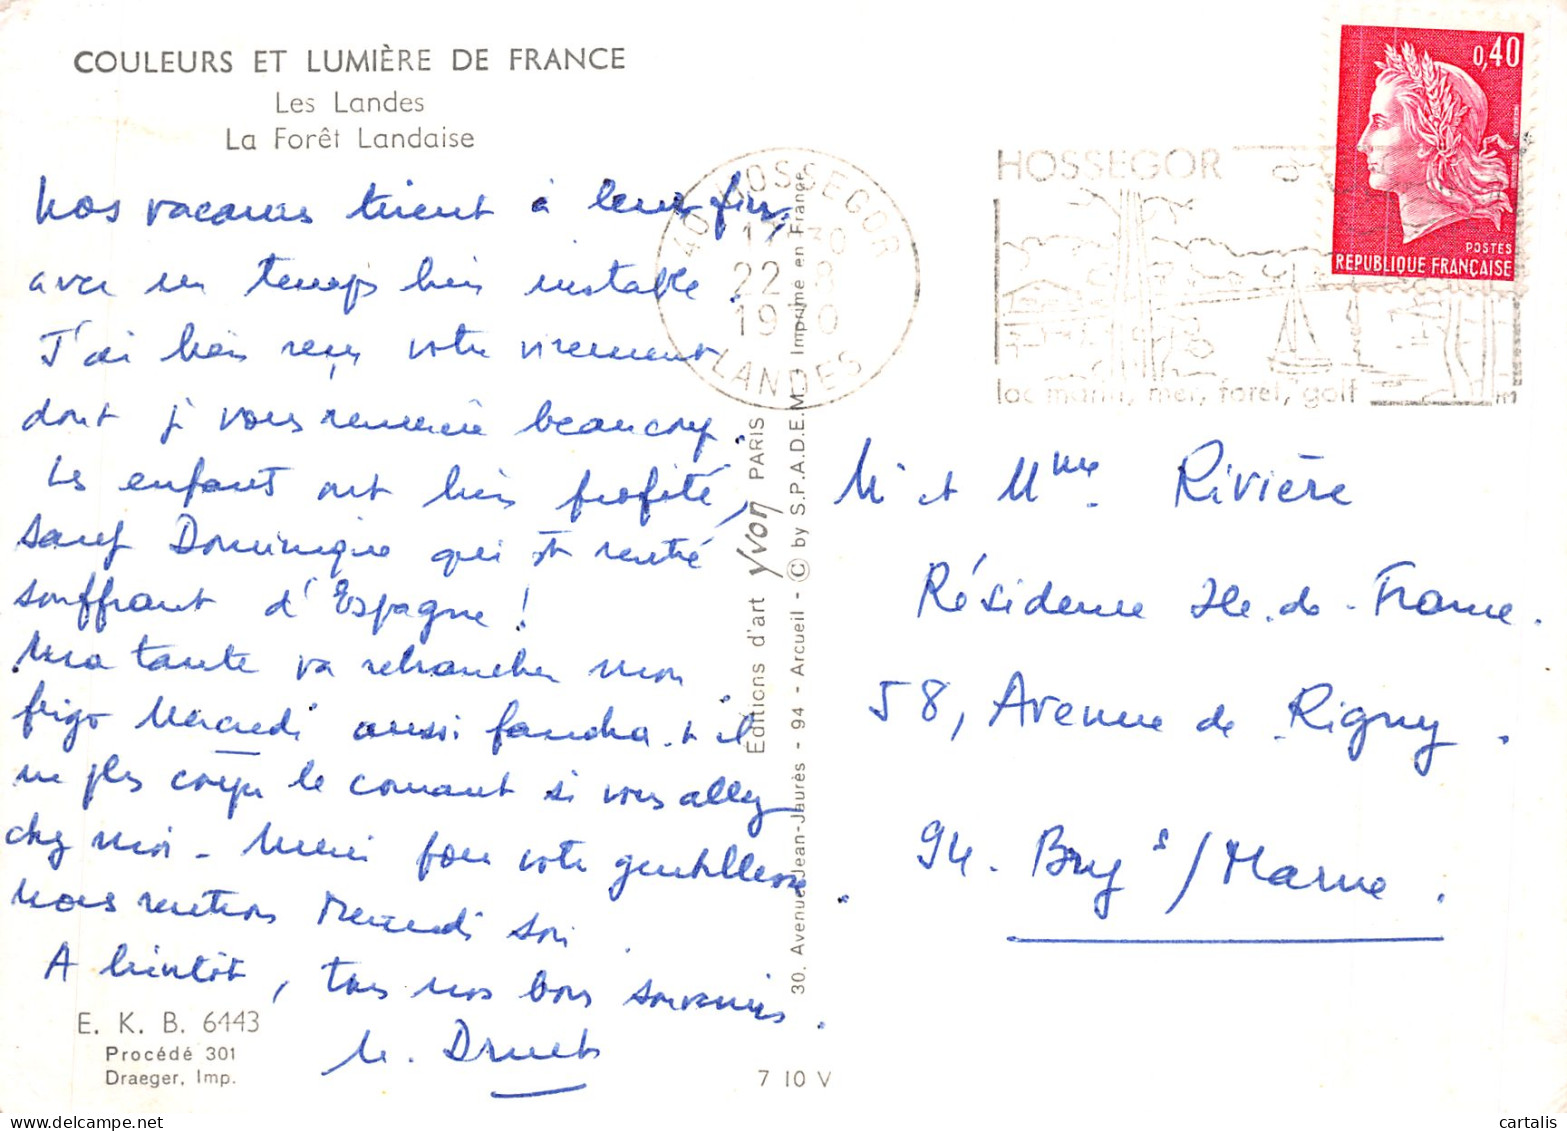 COULEURS ET LUMIÈRE DE FRANCE
Les Landes
La Forêt Landaise
Nos vacances tirent à leur fin,
avec un temps bien instable.
J'ai bien reçu votre virement
dont je vous remercie beaucoup.
Les enfants ont bien profité,
sauf Dominique qui est rentré
souffrant d'Espagne !
Ma tante va rebrancher mon
frigo Mercredi aussi faudra-t-il
ne plus couper le courant si vous allez
chez moi - Merci pour votre gentillesse.
Nous rentrons Mercredi soir.
A bientôt, tous nos bons souvenirs.
M. Druets
E. K. B. 6443
Procédé 301
Draeger, Imp.
7 10 V
Editions d'art Yvon PARIS
30, Avenue Jean-Jaurès - 94 - Arcueil - © by S.P.A.D.E.M. Imprimé en France
40 HOSSEGOR
22 8
LANDES
HOSSEGOR
lac marin, mer, foret, golf
0,40
POSTES
REPUBLIQUE FRANÇAISE
M et Mme Rivière
Résidence Ile-de-France.
58, Avenue de Rigny.
94. Bry s/Marne.
cartalis